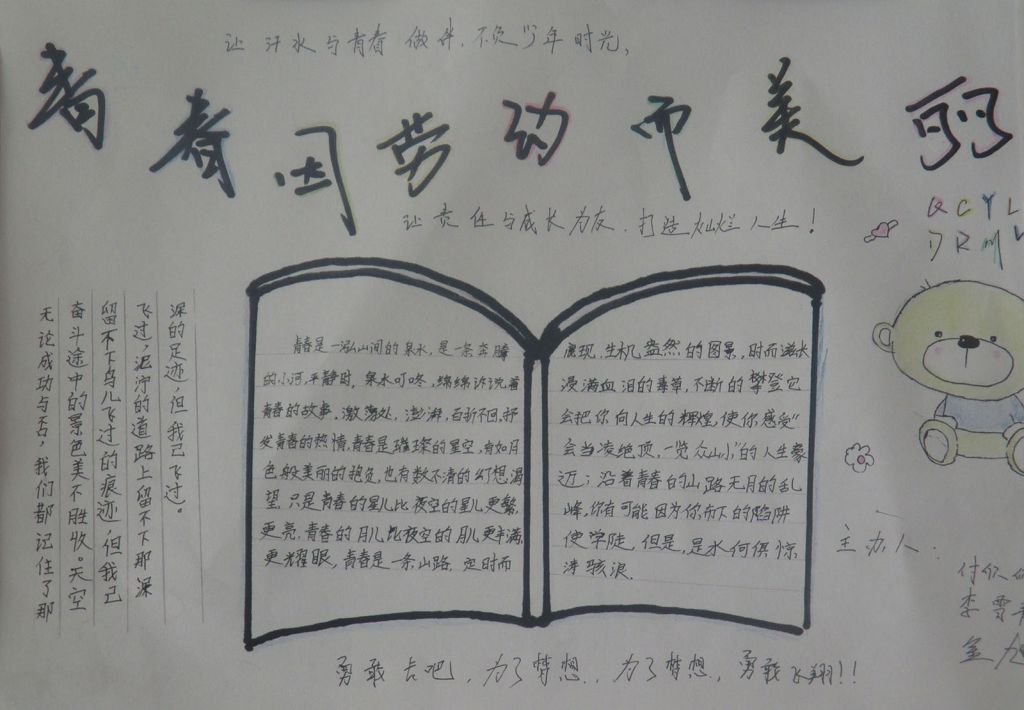 让汗水与青春做伴,不负少年时光,
青春因劳动而美丽
让责任与成长为友,打造灿烂人生!
QCYL
DRM
无论成功与否,我们都记住了那
奋斗途中的景色美不胜收。天空
留不下鸟儿飞过的痕迹,但我已
飞过,泥泞的道路上留不下那深
深的足迹,但我已飞过。
青春是一泓山间的泉水,是一条奔腾
的小河,平静时,泉水叮咚,绵绵诉说着
青春的故事,激荡处,澎湃,百折不回,抒
发青春的热情,青春是璀璨的星空,有如月
色般美丽的抱负,也有数不清的幻想渴
望,只是青春的星儿比夜空的星儿更繁,
更亮,青春的月儿比夜空的月儿更丰满,
更耀眼,青春是一条山路,它时而
展现,生机盎然的图景,时而滋长
浸满血泪的毒草,不断的攀登它
会把你向人生的辉煌,使你感受“
会当凌绝顶,一览众山小”的人生豪
近;沿着青春的山路无月的乱
峰,你有可能因为你而下的陷阱
使学陡,但是,是水何惧惊
涛骇浪.
主办人:
李雪
金旭
勇敢去吧,为了梦想,为了梦想,勇敢飞翔!!